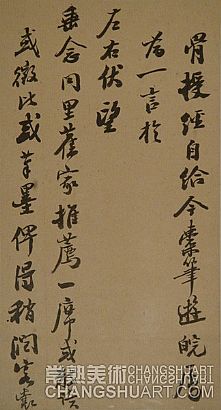 胥授经自给今橐筆遊皖
为一言於
左右伏望
垂念同里舊家推薦一席或
或徵比或筆墨俾得稍润客囊
常熟美術
CHANGSHUART.COM